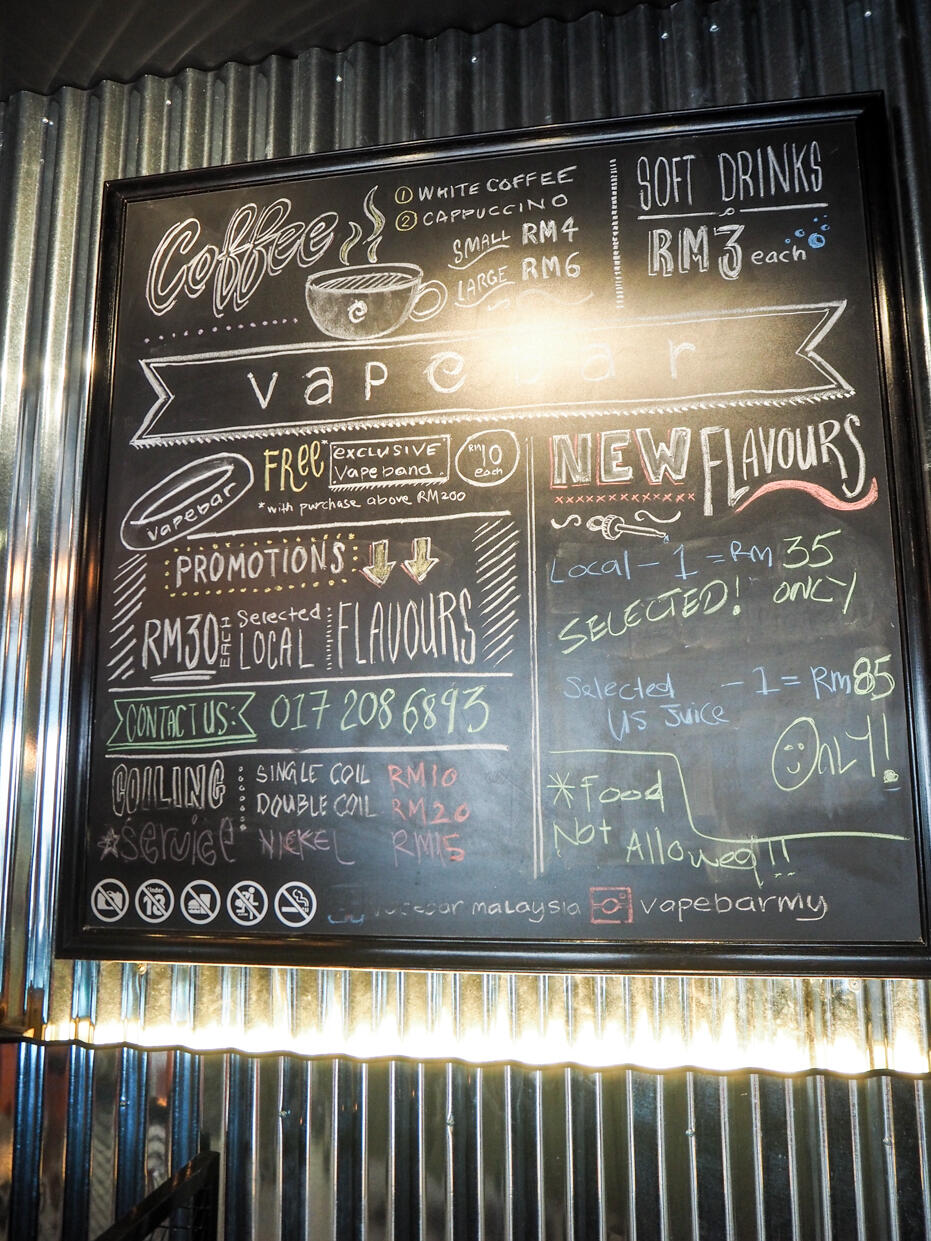 Coffee
1 WHITE COFFEE
2 CAPPUCCINO
SMALL RM4
LARGE RM6
SOFT DRINKS
RM3 each
vape bar
vapebar
FREE* EXCLUSIVE
Vapeband.
RM10
each
*with purchase above RM200
PROMOTIONS
RM30 EACH Selected LOCAL FLAVOURS
CONTACT US: 017 208 6893
COILING SINGLE COIL RM10
DOUBLE COIL RM20
*Service NICKEL RM15
NEW FLAVOURS
Local - 1 = RM 35
SELECTED! ONLY
Selected - 1 = Rm85
US Juice
ONLY!
*Food
Not Allowed!!
Under
18
malaysia vapebarmy